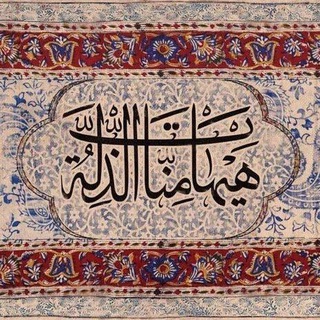 هیهات منّا الذلّة